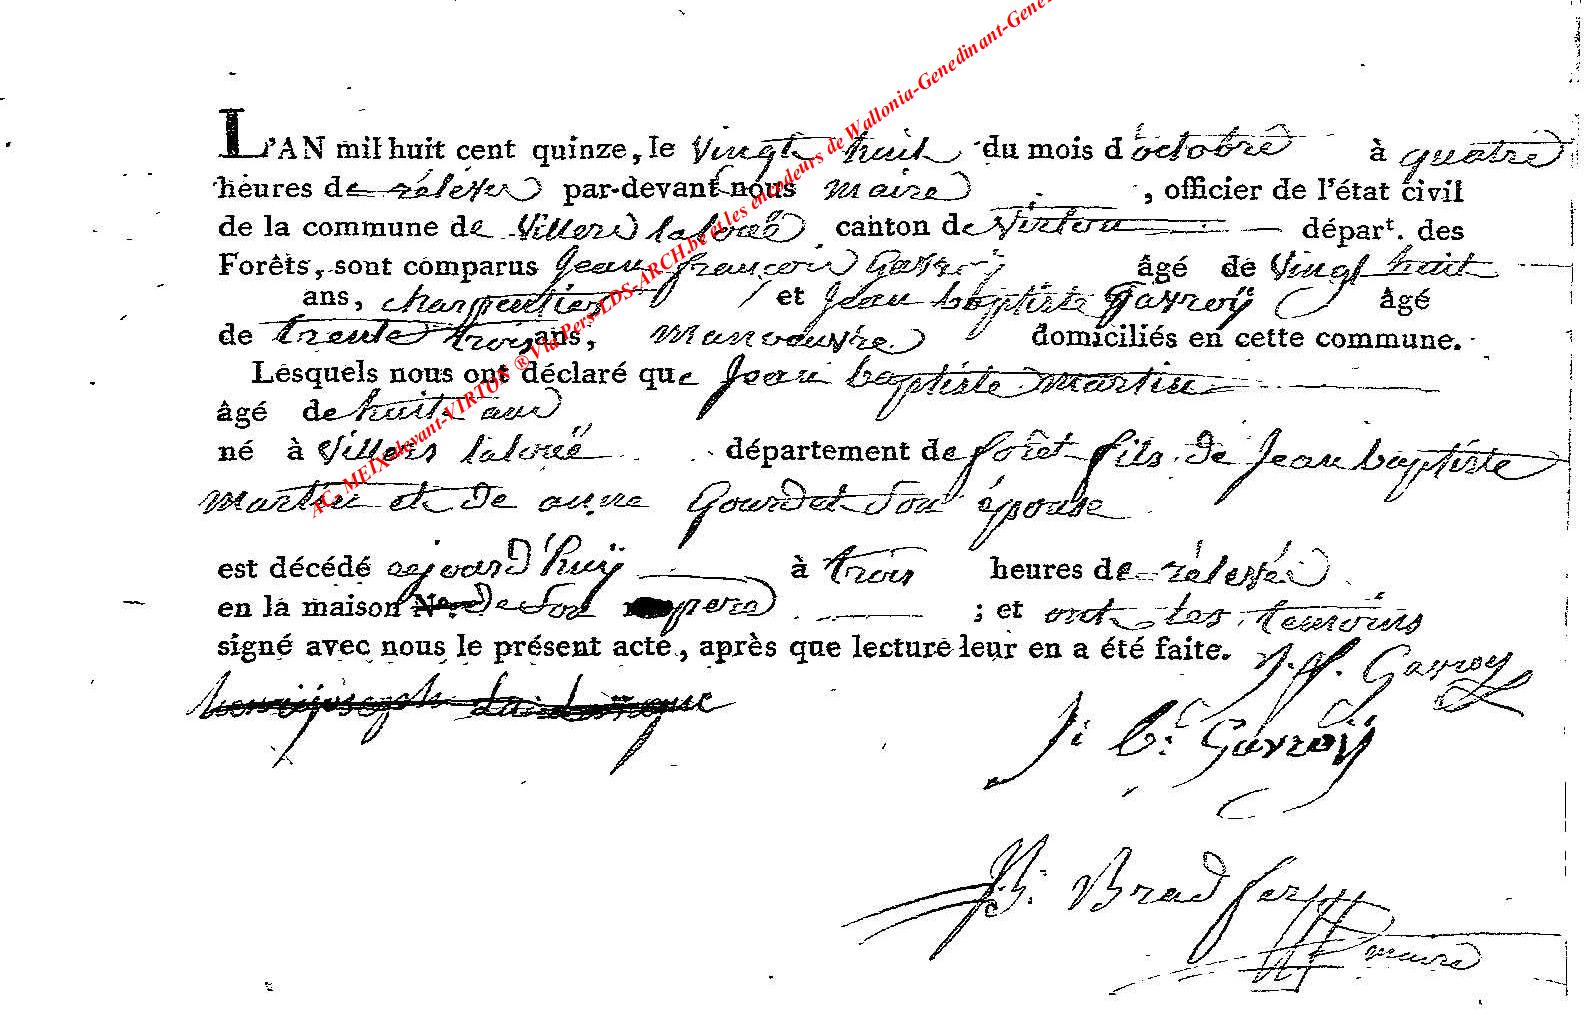 L'AN mil huit cent quinze, le vingt huit du mois d'octobre à quatre
heures de relevée par-devant nous maire , officier de l'état civil
de la commune de Villers laloue canton de Virton départ. des
Forêts, sont comparus Jean françois Gavroÿ âgé de vingt huit
ans, charpentier et Jean baptiste Gavroÿ âgé
de trente trois ans, manoeuvre domiciliés en cette commune.
Lesquels nous ont déclaré que Jean baptiste martin
âgé de huit ans
né à Villers laloue département de forêt fils de Jean baptiste
martin et de anne Gourdet son épouse
est décédé à trois heures de relevée
en la maison de son pere ; et ont les temoins
signé avec nous le présent acte, après que lecture leur en a été faite. J. f. Gavroy
henrijoseph
J: b: Gavroÿ
maire
AC. MEIX-devant-VIRTON ® Via Pers-LDS-ARCH.be et les encodeurs de Wallonia-Genedinant-Gene